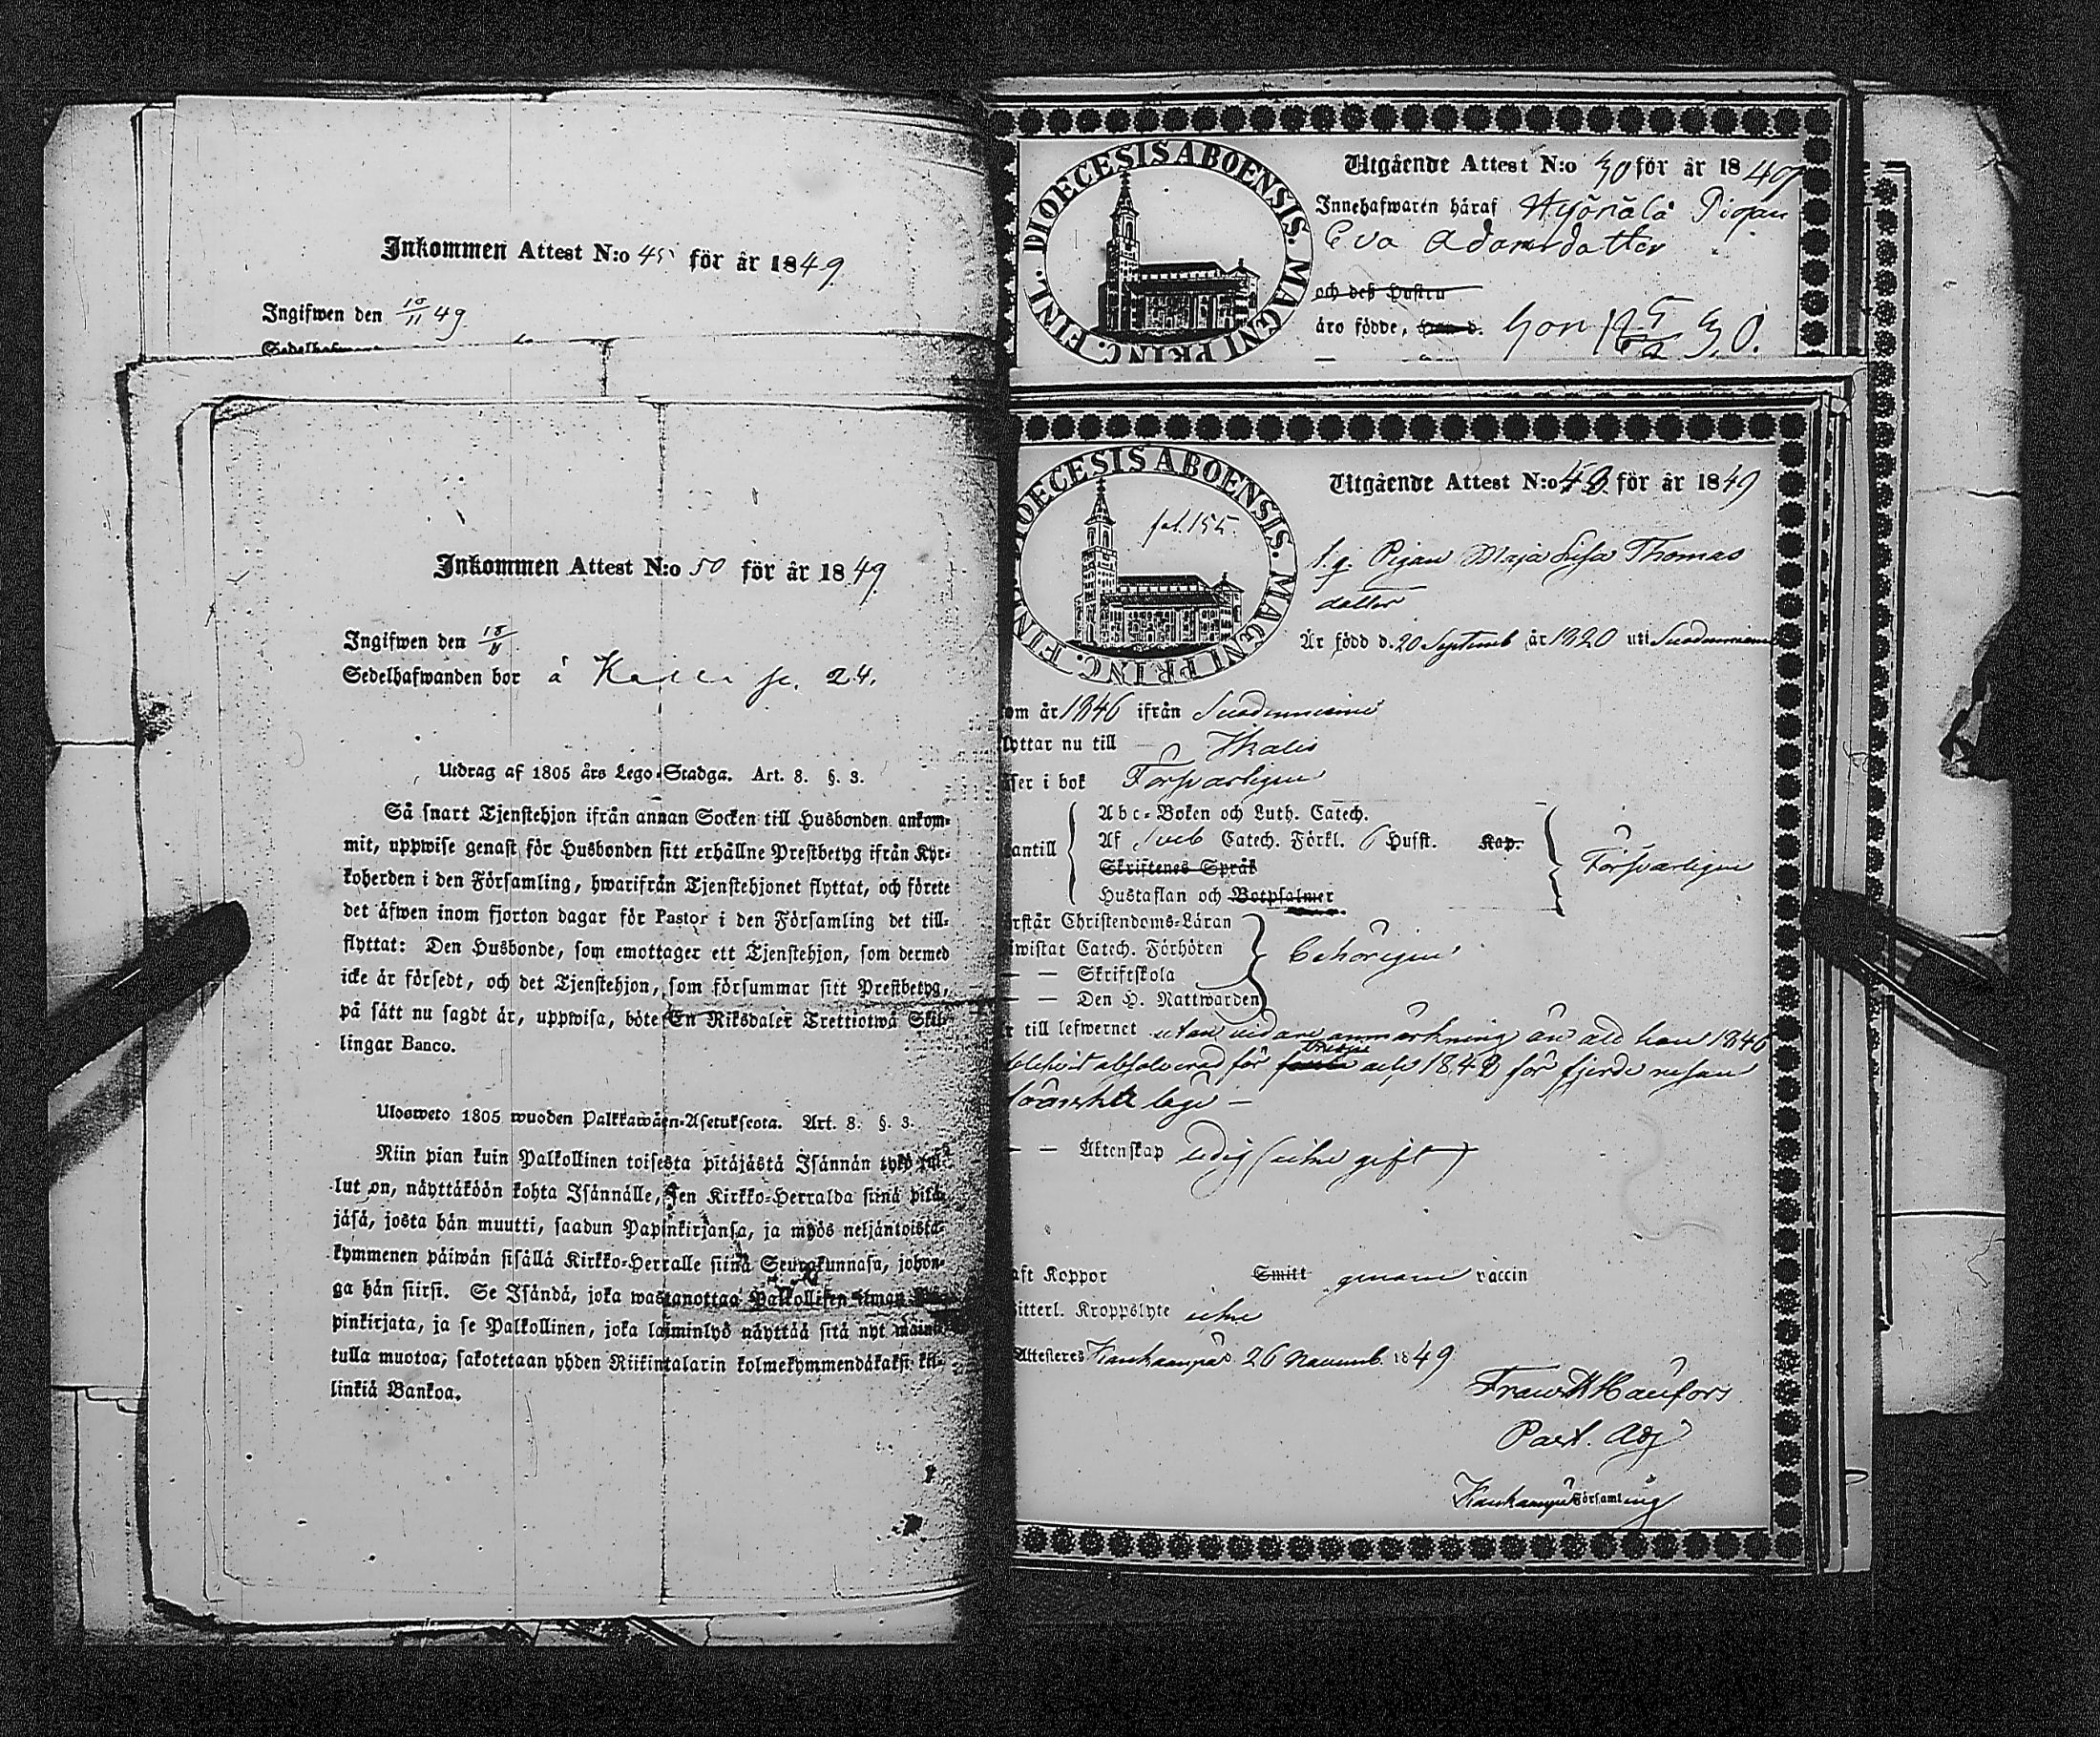 Inkommen Attest N:o 45 för år 1849
Ingifwen den 18/11 49
Inkommen Attest N:o 50 för år 1849
Ingifwen den 18/11
Sedelhafwanden bor å 24.
Utdrag af 1805 års Lego-Stadga. Art. 8. §. 3.
Så snart Tjenstehjon ifrån annan Socken till Husbonden ankom-
mit, uppwise genast för Husbonden sitt erhållne Prestbetyg ifrån Kyr-
koherden i den Församling, hwarifrån Tjenstehjonet flyttat, och förete
det äfwen inom fjorton dagar för Pastor i den Församling det till-
flyttat: Den Husbonde, som emottager ett Tjenstehjon, som dermed
icke är försedt, och det Tjenstehjon, som försummar sitt Prestbetyg,
på sätt nu sagdt är, uppwisa, böte En Riksdaler Trettiotwå Skil-
lingar Banco.
Ulosweto 1805 wuoden Palkkawäen-Asetuksesta. Art. 8. §. 3.
Niin pian kuin Palkollinen toisesta pitäjästä Isännän tykö tul-
lut on, näyttäköön kohta Isännälle, sen Kirkko-Herralda siinä pitä-
jäsä, josta hän muutti, saadun Papinkirjansa, ja myös neljäntoista-
kymmenen päiwän sisällä Kirkko-Herralle siinä Seurakunnasa, johon-
ga hän siirsi. Se Isändä, joka wastanottaa Palkollisen ilman Pa-
pinkirjata, ja se Palkollinen, joka laiminlyö näyttää sitä nyt maini-
tulla muotoa, sakotetaan yhden Riikintalarin kolmekymmendäkaksi kil-
linkiä Bankoa.
DIOECESIS ABOENSIS. MAGNI PRINC. FINL.
Utgående Attest N:o 30 för år 1849
Innehafwaren häraf Pigan
Eva Adamsdotter
och deß Hustru
äro födde, Hon
DIOECESIS ABOENSIS. MAGNI PRINC. FINL.
fol. 155.
Utgående Attest N:o 43 för år 1849
f. q. Pigan Maja Lisa Thomas
dotter
Är född d. 20 Septemb år 1820 uti Suodenniemi
om år 1846 ifrån Suodenniemi
lyttar nu till Ikalis
ser i bok Försvarligen
antill
Abc-Boken och Luth. Catech.
Af Sveb Catech. Förkl. 6 Hufst. Kap.
Skriftenes Språk
Hustaflan och Botpsalmer
Försvarligen
rstår Christendoms-Läran
wistat Catech. Förhören
— — Skriftskola
— — Den H. Nattwarden
behörigen
r till lefwernet utan vidare anmärkning än att hon 1846
blifvit absolverad för tredje och 1848 för fjerde resan
lönskt läge —
— — Äktenskap ledig (icke gift)
aft Koppor Smitt genom vaccin
itterl. Kroppslyte icke
Attesteres Kankanpää 26 Novemb. 1849
Past. Adj
Kankanpää Församling